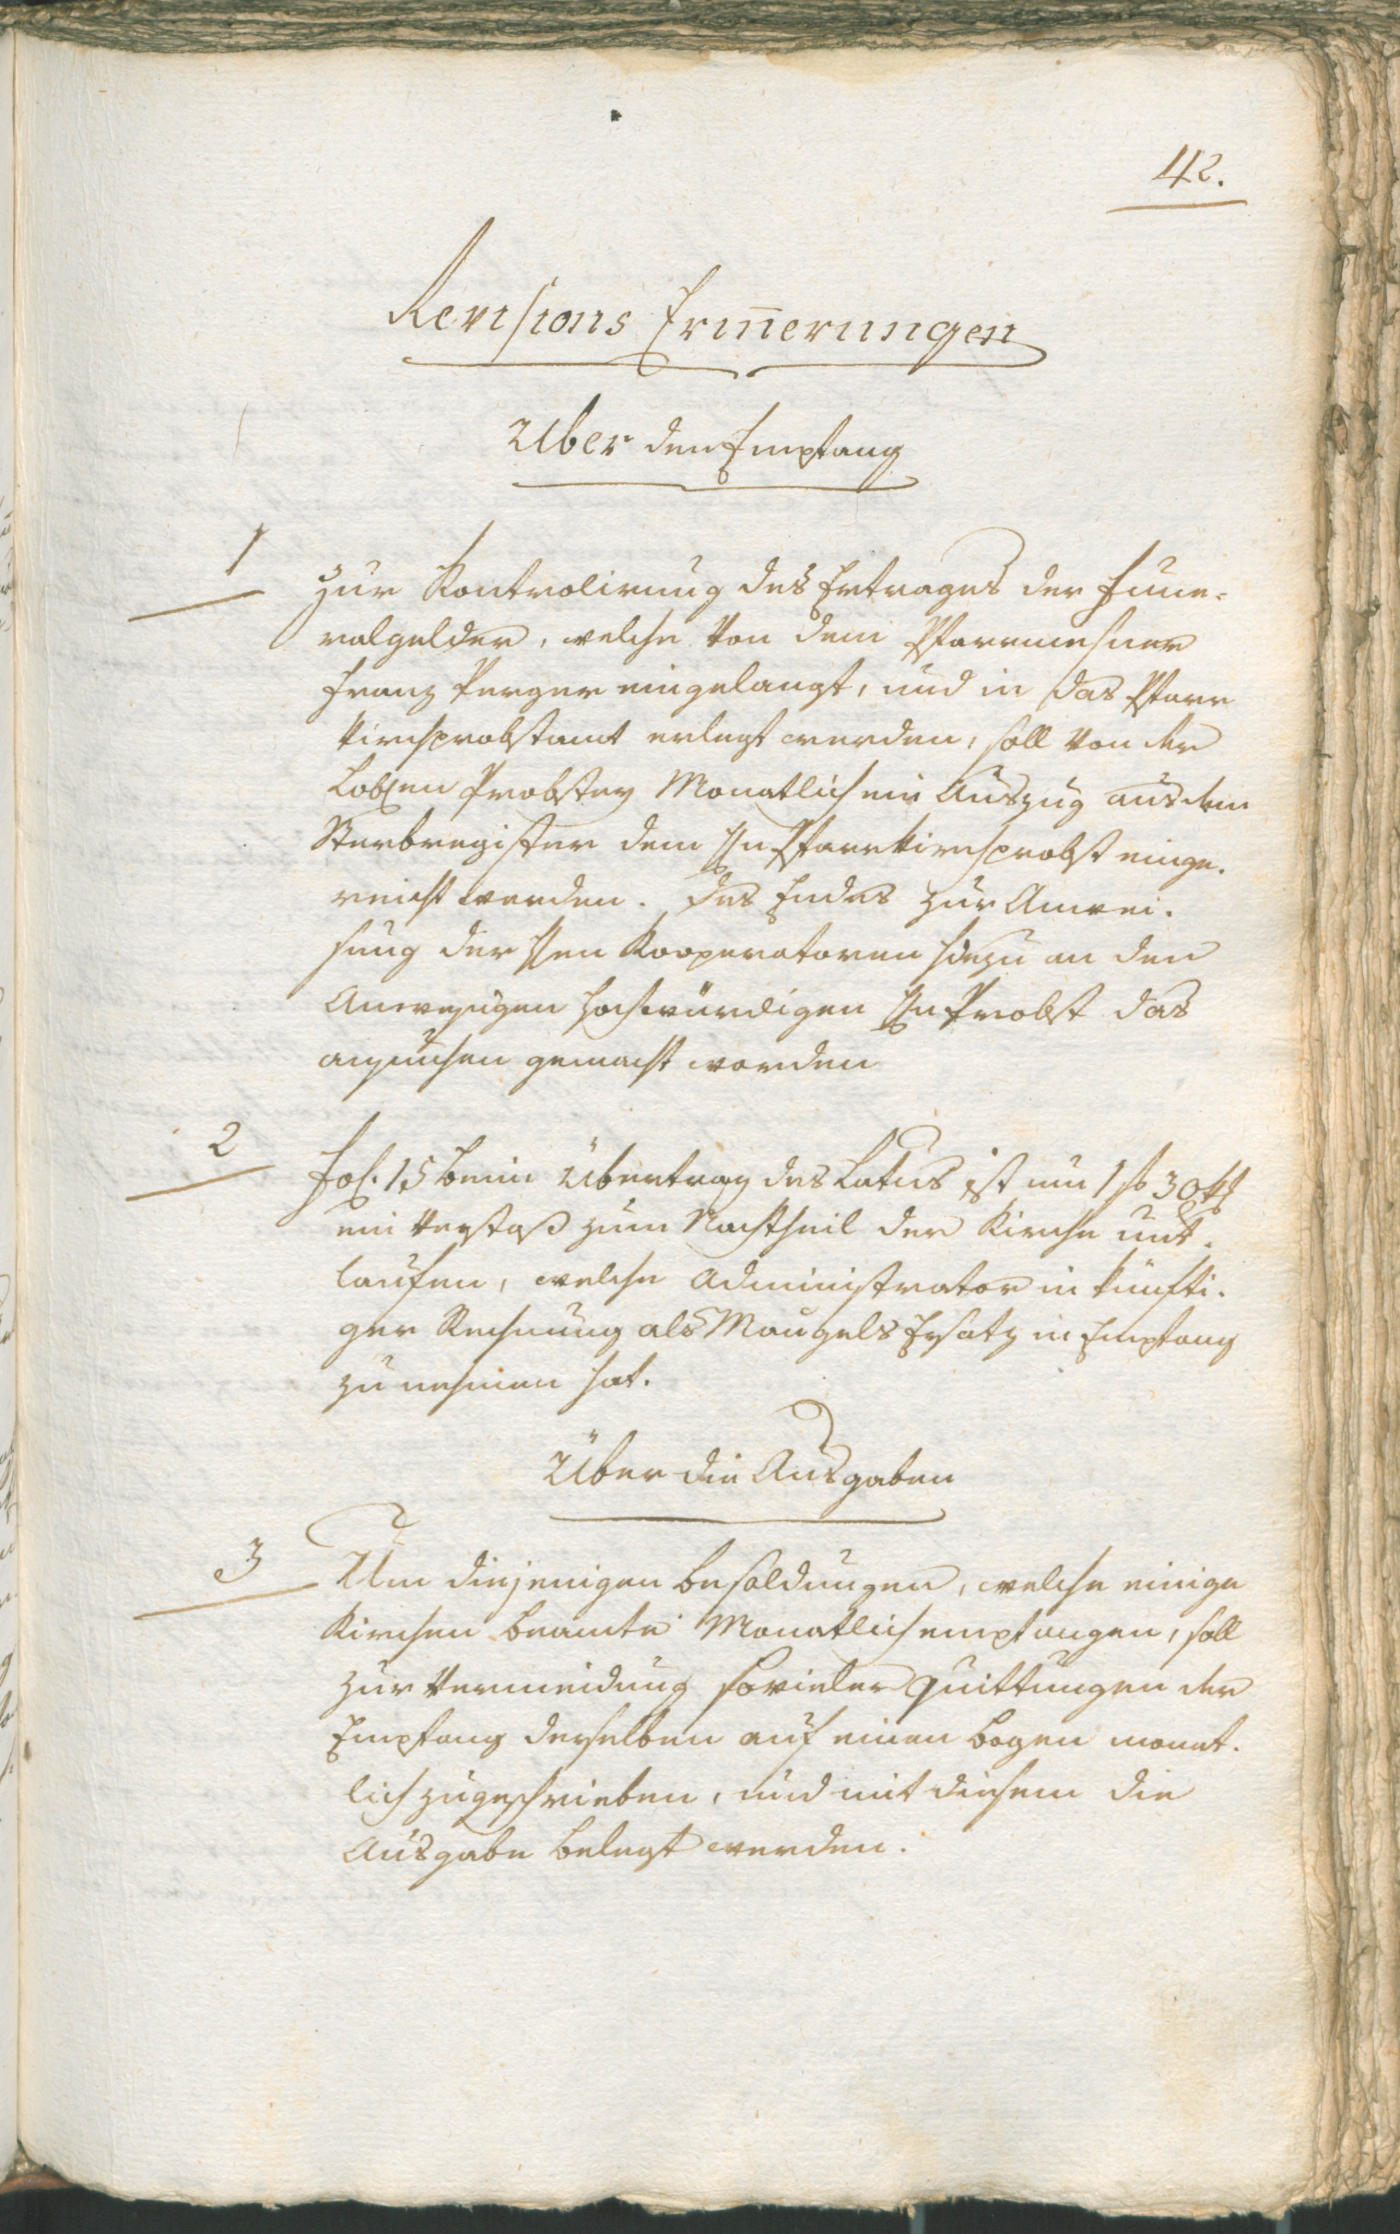 42.
Revisions Erin̄erungen
Uber den Empfang
1
Zur Kontrolirung des Ertrages der Fune-
ralgelder, welche von dem Pfarrmesner
Franz Perger eingelangt, und in das Pfarr
kirchprobstamt erlegt werden, soll von der
Loben Probstey Monatlich ein Auszug aus dem
Sterbregister dem Hn Pfarrkirchprobst einge-
reicht werden. Des Endes zur Anwei-
sung der Hen Kooperatoren hiezu an den
Hochwürdigen Hn Probst das
Ansuchen gemacht worden
2
Fol. 15 beim Übertrag des Latus ist um 1 f 30 kr
ein Verstoß zum Nachtheil der Kirche unt-
laufen, welche Administrator in künfti-
ger Rechnung als Mangels Ersatz in Empfang
zu nehmen hat.
Über die Ausgaben
3
Um diejenigen Besoldungen, welche einige
Kirchen Beamte Monatlich empfangen, soll
zur Vermeidung sovieler Quittungen der
Empfang derselben auf einen Bogen monat-
lich zugeschrieben, und mit diesem die
Ausgabe belegt werden.